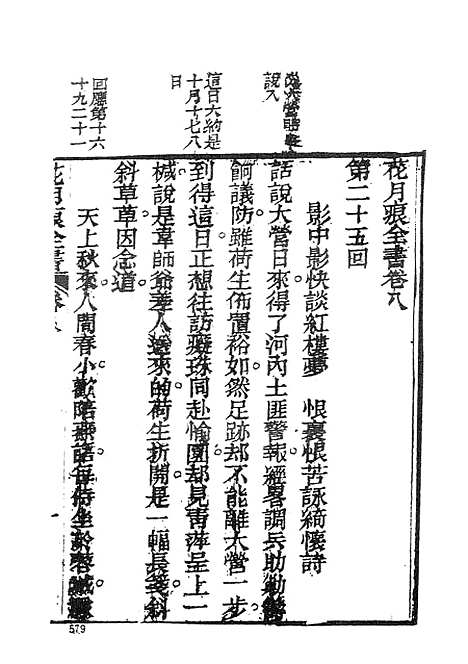 花月痕全書卷八
第二十五回
影中影快談紅樓夢　恨裏恨苦詠綺懷詩
話說大營日來得了河內土匪警報經畧調兵助勦籌
餉議防雖荷生佈置裕如然足跡却不能離大營一步
到得這日正想往訪癡珠同赴愉園却見靑萍呈上一
椷說是韋師爺差人送來的荷生拆開是一幅長箋斜
斜草草因念道
天上秋來人間春小歡陪燕語每侍坐於蓉
說入
這日大約是
十月十七八
日
回應第十六
十九二十一
花月痕全書 卷八
一
579